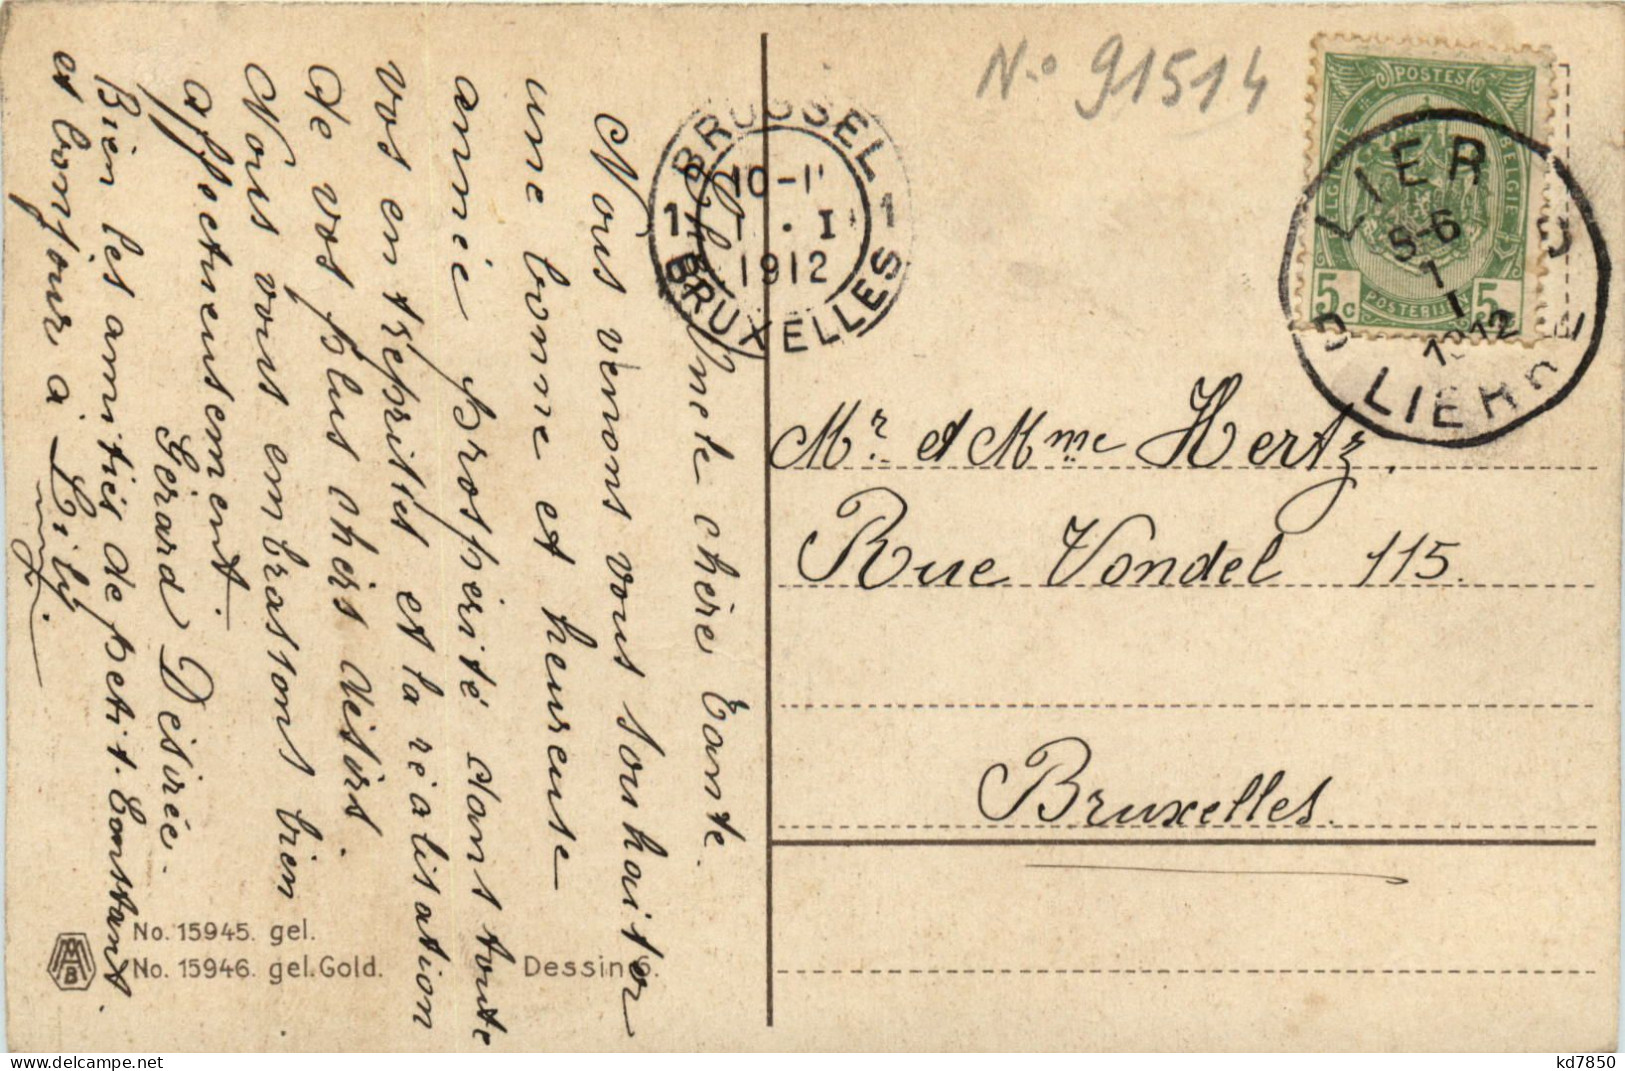 N.º 91514
POSTES
BELGIQUE
BELGIE
5c
POSTERIJEN
5
LIER
5-6
1
I
1912
LIERRE
BRUSSEL
1 10-11 1
I
1912
BRUXELLES
Mr et Mme Hertz.
Rue Vondel 115.
Bruxelles.
chère Tante.
Nous venons vous souhaiter
une bonne et heureuse
année prospérité dans toute
vos entreprites et la réalisation
de vos plus chers désirs.
Nous vous embrassons bien
affectueusement.
Gérard Désirée.
Bien les amitiés de petit. Constant.
et bonjour à
No. 15945. gel.
No. 15946. gel. Gold.
Dessin 6.
kd7850